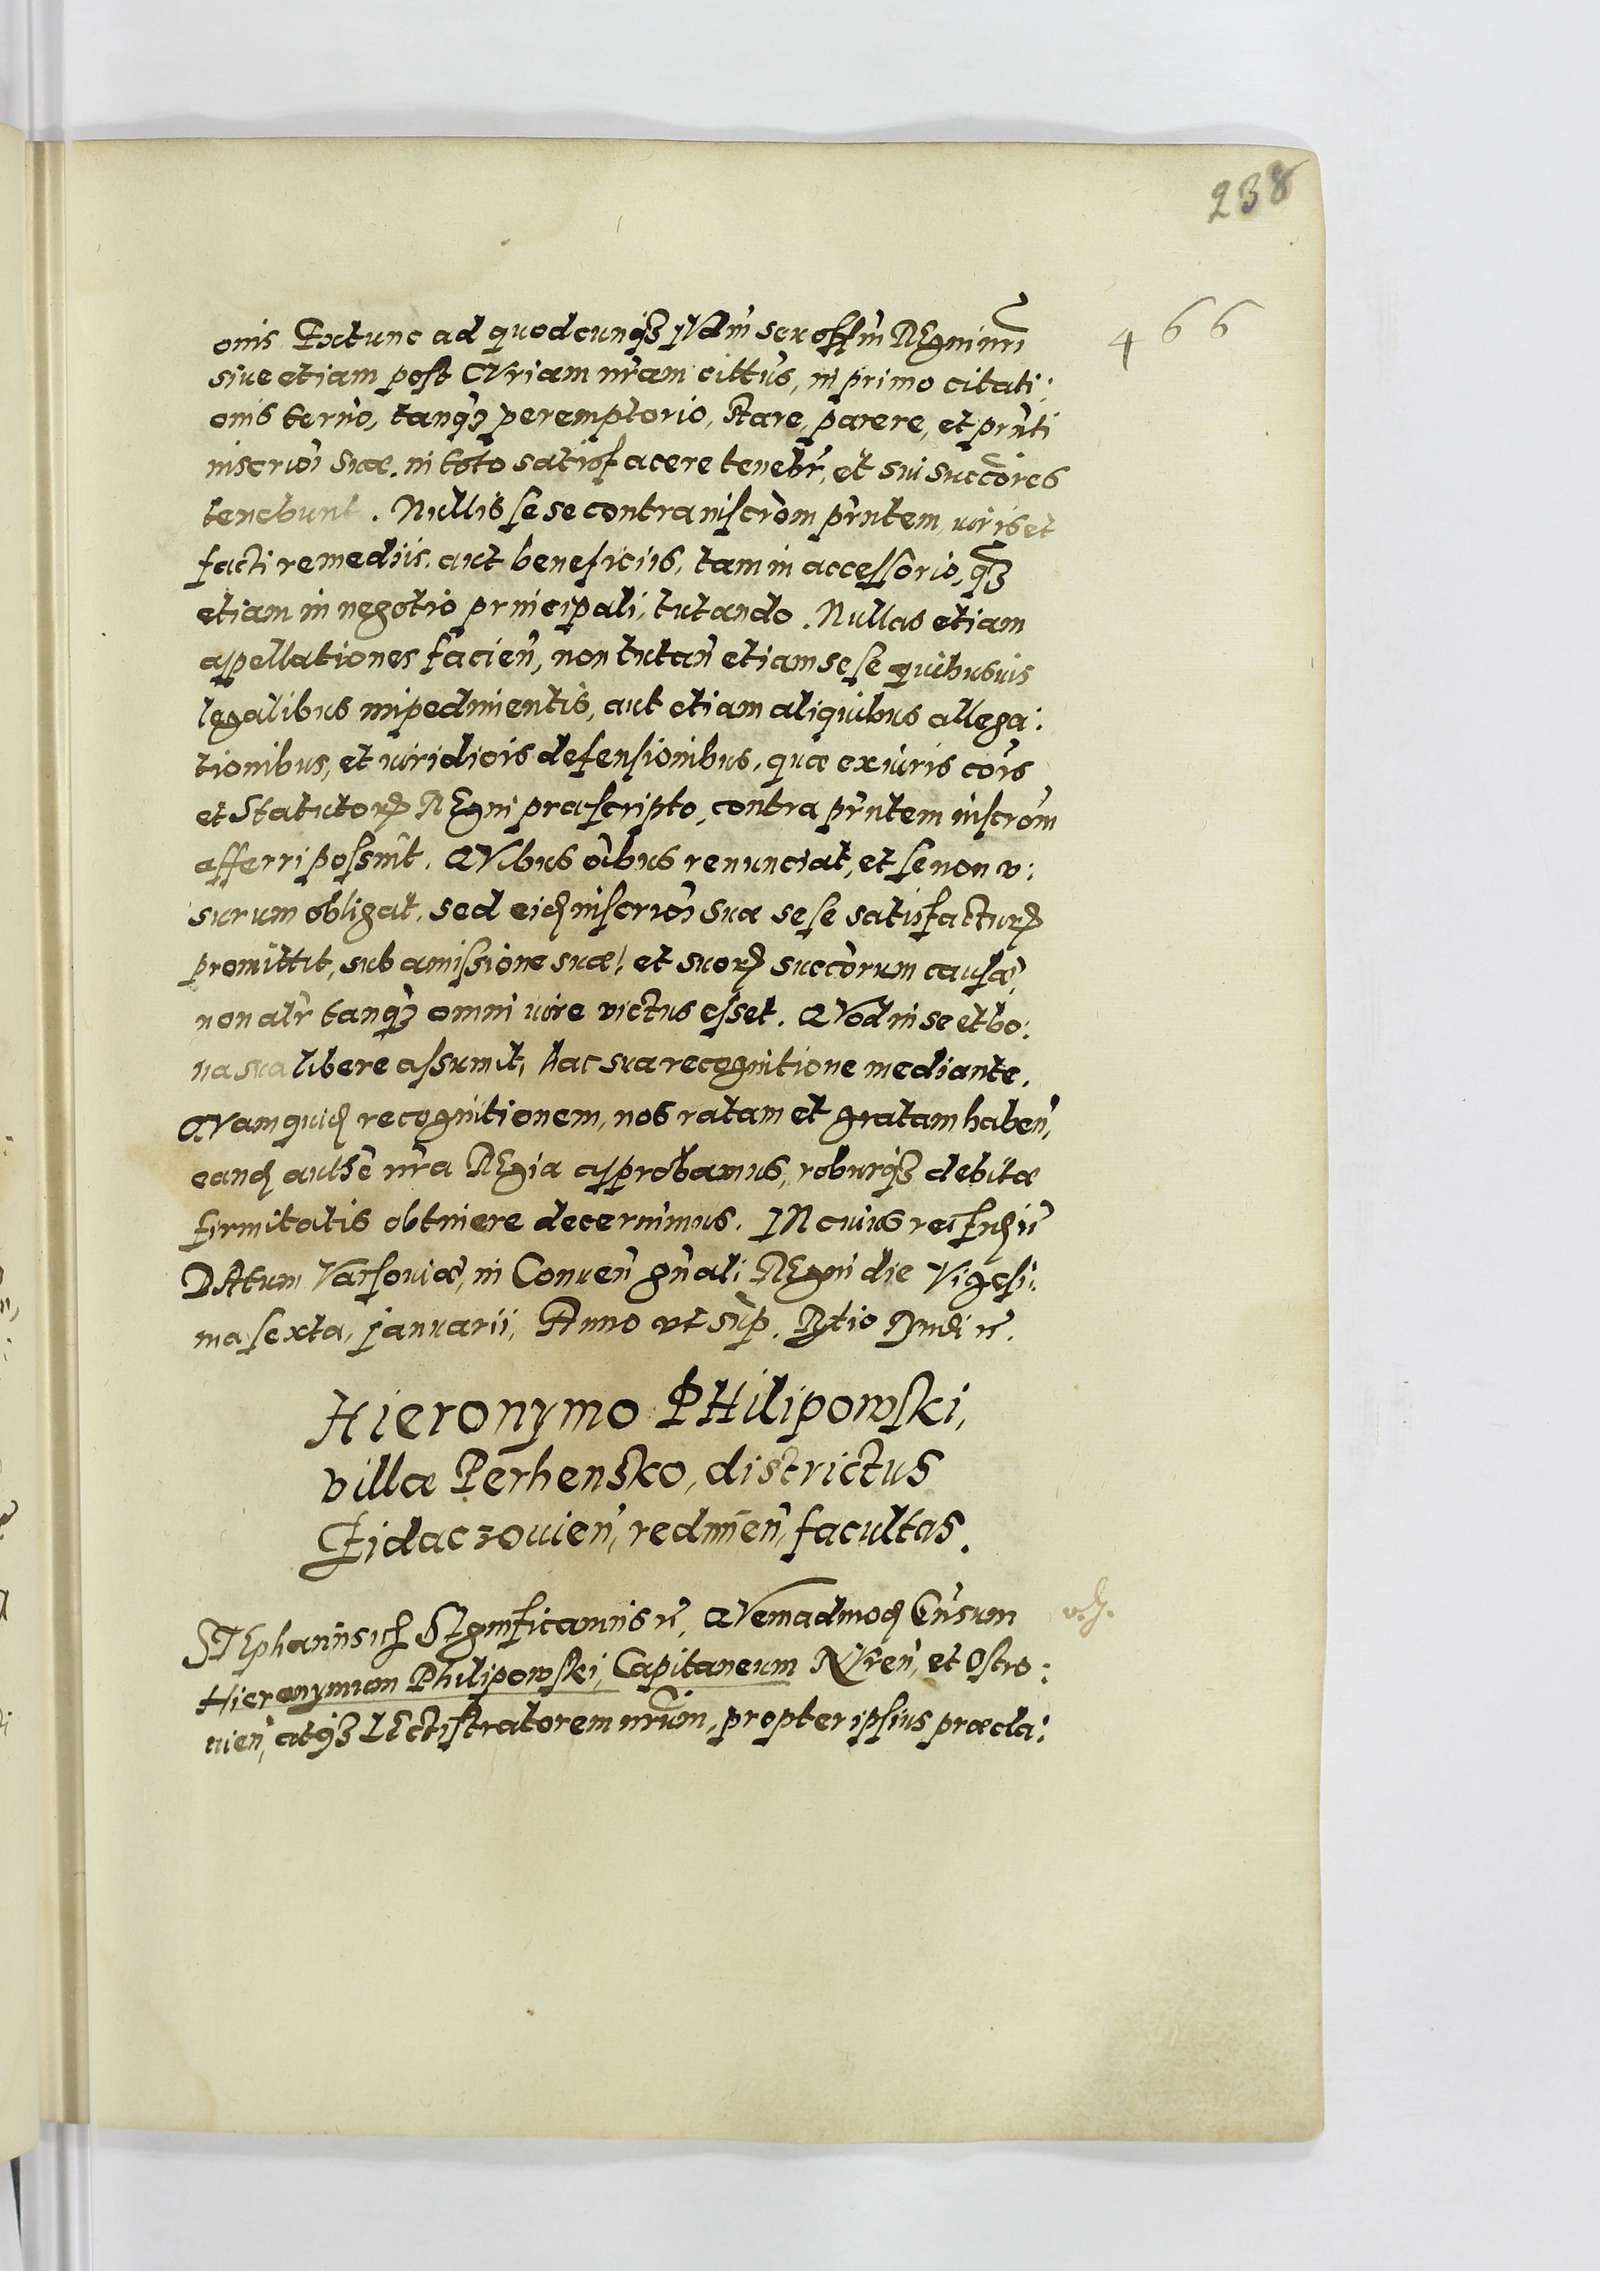 238
466
onis Extunc ad quodcunqz Judm seu offm Regni nri
siue etiam post Curiam nram cittus, in primo citati:
onis terno, tanqz peremptorio, stare, parere, et prnti
inscrioi suae, in toto satisfacere tenebr, et sui succores
tenebunt. Nullis sese contra inscrom prntem, iuris et
facti remediis, aut beneficiis, tam in accessorio, qz
etiam in negotio principali, tutando. Nullas etiam
appellationes facien, non tutan etiam sese quibusuis
legalibus impedimentis, aut etiam aliquibus allega:
tionibus, et iuridicis defensionibus, quae ex iuris cois
et Statutor Regni praescripto, contra prntem inscrom
afferri possint. Quibus oibus renunciat, et se non v:
surum obligat, sed eid inscrioi suae sese satisfactur
promittit, sub amissione suae, et suor succorum causae,
non alr tanqz omni iure victus esset. Quod in se et bo:
na sua libere assumit, hac sua recognitione mediante.
Quam quid recognitionem, nos ratam et gratam haben,
eand authe nra Regia approbamus, roburqz debitae
firmitatis obtinere decernimus. In cuius rei
Datum Varsouiae, in Conuen gnali Regni die Vigesi:
ma sexta, Januarii, Anno vt sup.
Hieronymo PHilipowski,
villae Perhensko, districtus
Zidaczouien, redimen, facultas.
STEphanus Significamus Quemadmod Gnsum
Hieronymum Philipowski, Capitaneum et Ostro:
uien, atqz Lectistratorem nrum, propter ipsius praecla: